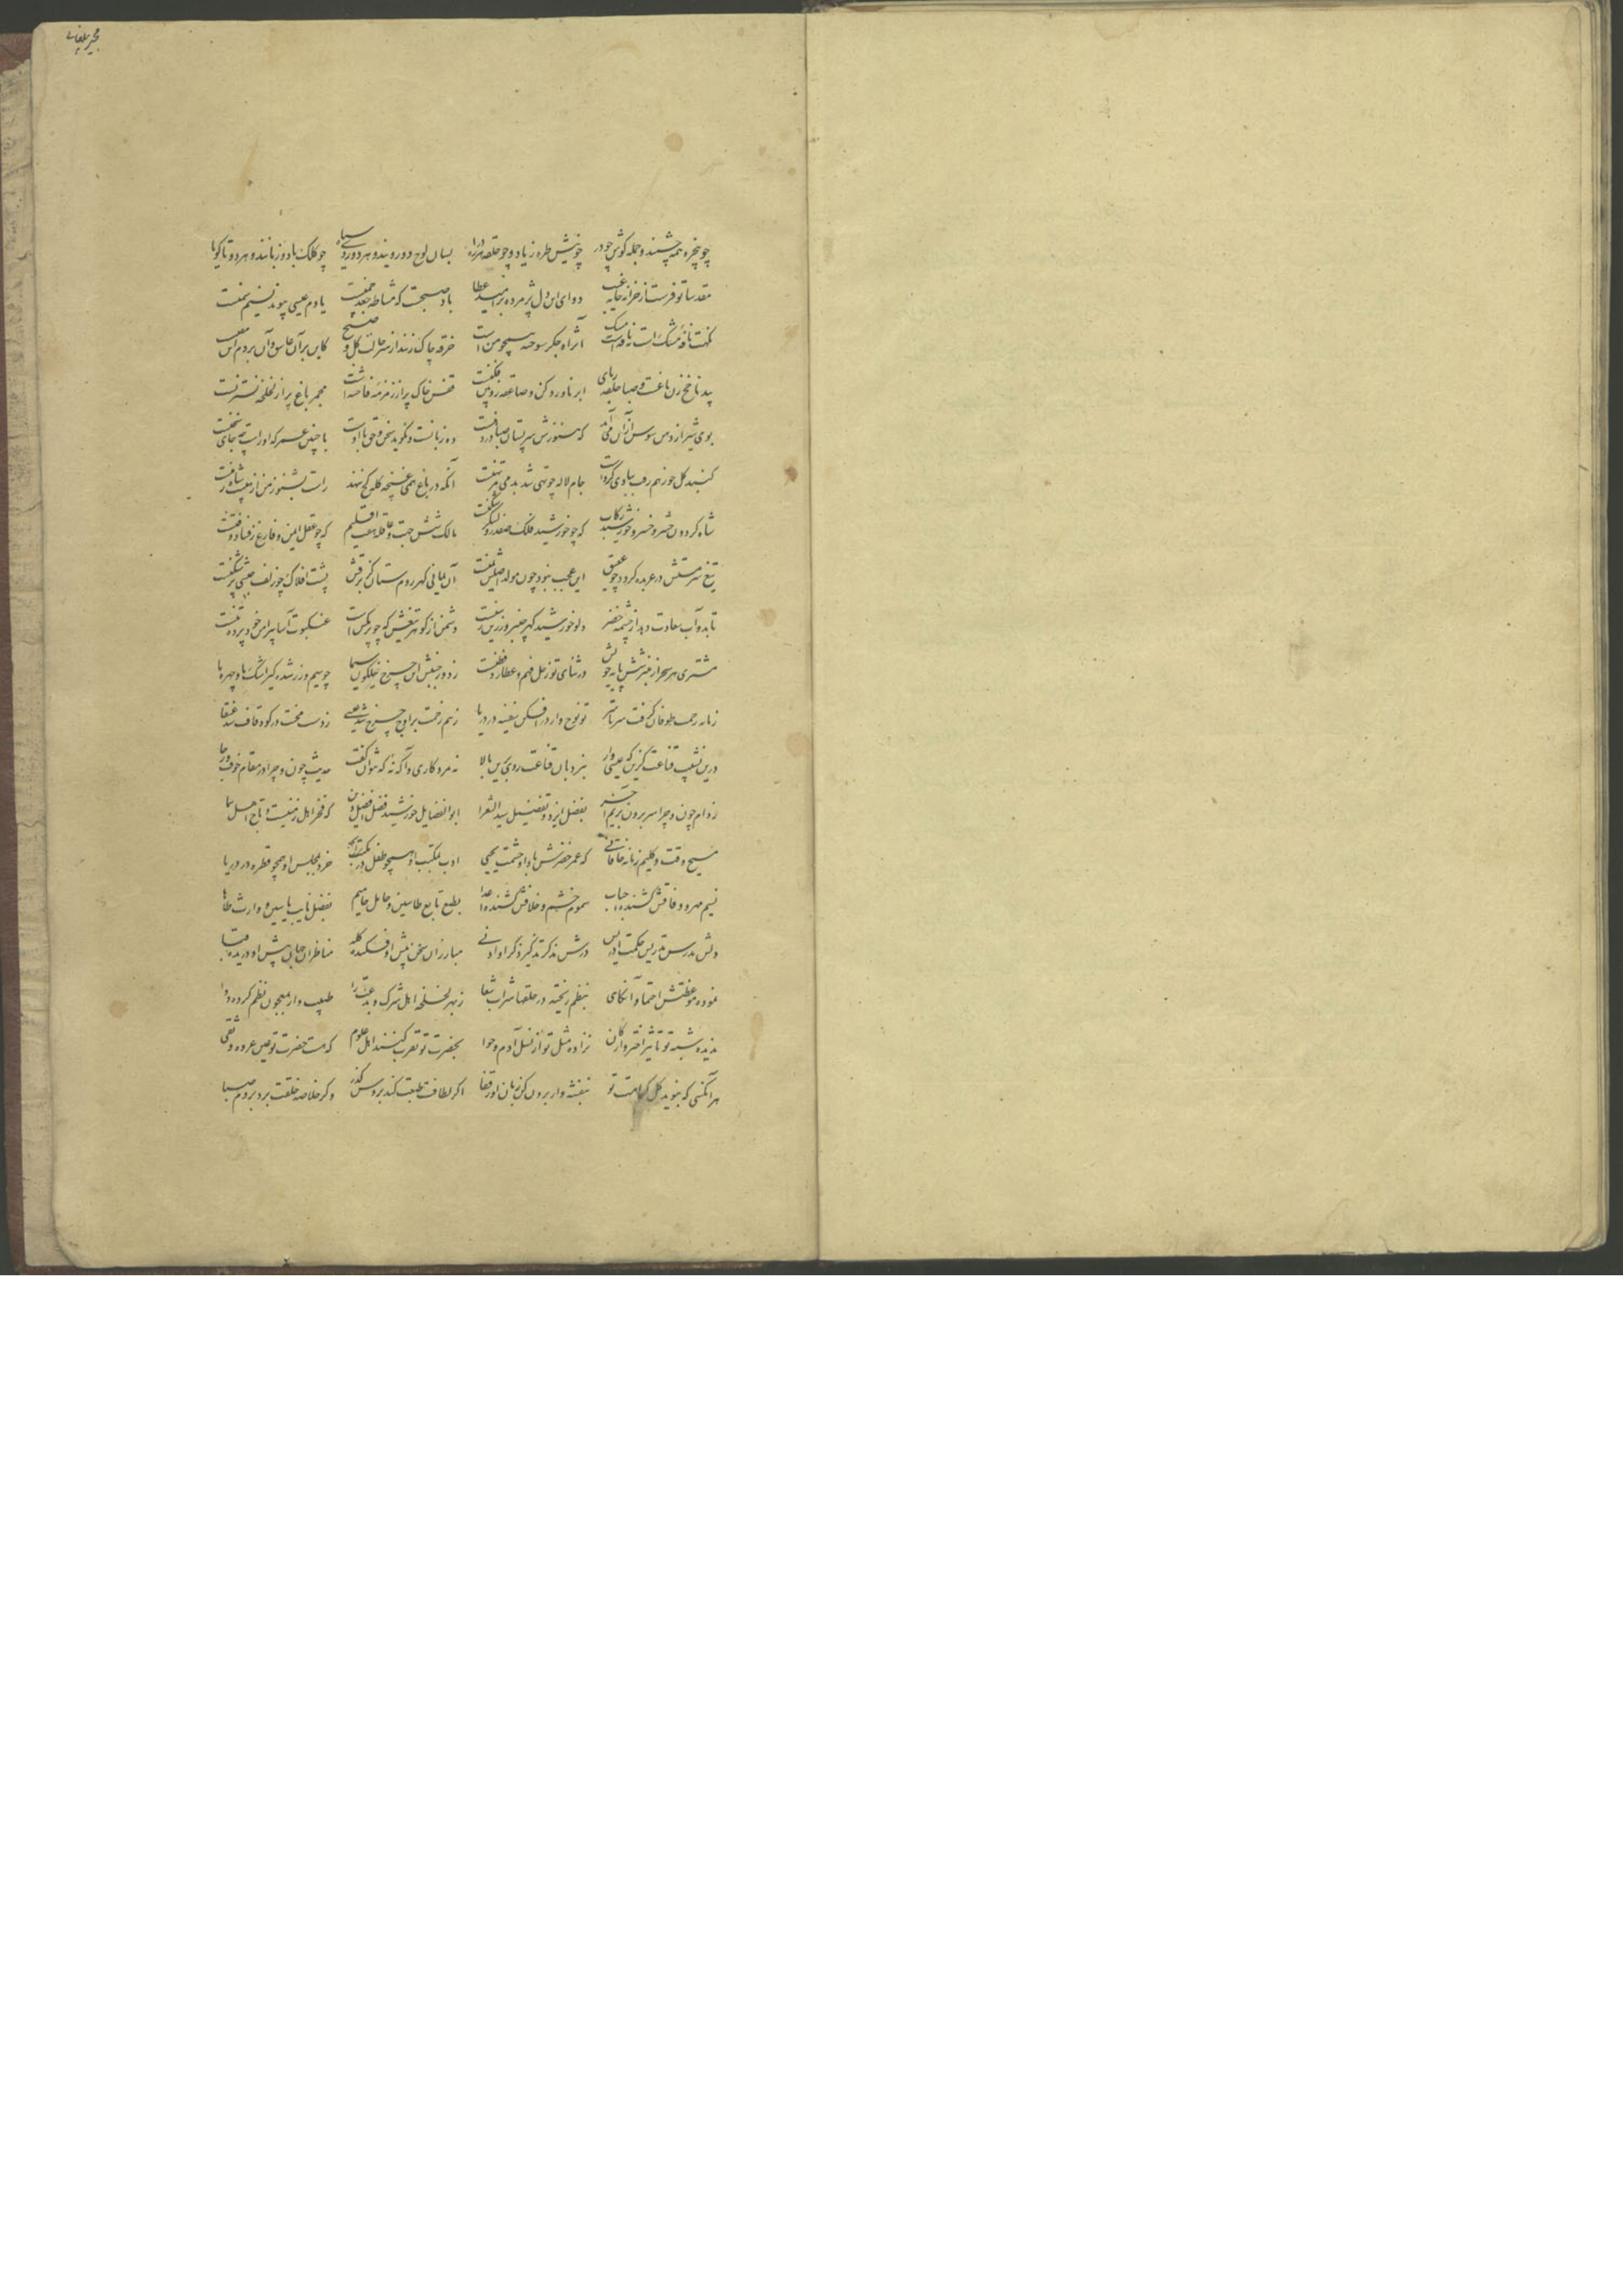 مجیر بیلقانی
چو پنجره همه چشمند و جمله گوش چو در چو نیش طره زیاد و چو حلقه هرزه درا بسان لوح دو رویند و هر دو روی سیاه چو کلک باد و زبانند و هر دو تا گویا
مقدسا تو فرست از خزانه خانه غیب دوای این دل پژمرده بر امید عطا باد صبحست که مشاطه جعد چمنست یا دم عیسی پیوند نسیم سمنست
نکهت نافه مشک است نه نافه مشک است اثر آه جگر سوخته همچو من است خرقه چاک زنند از سر حالت گل و صبح کاین بر آن عاشق و آن بر دم این
بید ناخج زن باغست و صبا حلقه ربای ابر ناورد کن و صاعقه زوبین فکنست قفس خاک پر از زمزمه فاخته است مجمر باغ پر از لخلخه نسترنست
بوی شیر از دهن سوسن از آن می‌آید که هنوزش سر پستان صبا در دهنست ده زبانست و نگوید سخن و حق با اوست با چنین عمر که او راست چه جای سخنست
گنبد گل چو ز هم رفت ببادی گروست جام لاله چو تهی شد بدمی مرتهنست آنکه در باغ همی غنچه کله کج بنهد راست بشنو ز من از هیبت شاه زمنست
شاه گردون حشر و خسرو خورشید رکاب که چو خورشید فلک صفدر و لشکر شکنست مالک شش جهت و قلعه هفت اقلیم که چو عقل ایمن و فارغ ز فساد و فتنست
تیغ سرمستش در عربده گردد چو عقیق این عجب نبود چون مولد اصلش یمنست آن یمانی گهر روم ستان کز برقش پشت افلاک چو زلف حبشی پر شکنست
تا بدو آب سعادت دهد از چشمه خضر دلو خورشید گهر چنبر و زرین رسنست دشمن از گوهر تیغش که چو پر مگس است عنکبوت آسا پیرامن خود پرده تنست
مشتری هر سحر از منبر شش پایه خویش در ثنای تو زحل فهم و عطارد فطنست ز دور جنبش این چرخ نیلگون سیما چو سیم و زر شده گیر اشک ما و چهره ما
زمانه رحمت طوفان گرفت سر تا سر تو نوح وار درافکن سفینه در دریا ز هم رخت بر اوج چرخ شد عیسی ز دست محنت در کوه قاف شد عنقا
درین نشیب قناعت گزین که عیسی وار بنردبان قناعت روی برین بالا نه مرد کاری و آگه نه که نتوان گفت حدیث چون و چرا در مقام خوف و رجا
ز دام چون و چرا سر برون بریم آخر بفضل ایزد و تفضیل سید الشعرا ابوالفضایل خورشید فضل افضل دین که فخر اهل زمینست و تاج اهل سما
مسیح وقت و کلیم زمانه خاقانی که عمر خضرش باد و حشمت یحیی ادب بمکتب او همچو طفل در مکتب خرد بمجلس او همچو قطره در دریا
نسیم مهر و وفاقش کشنده احباب سموم خشم و خلافش کشنده اعدا بطبع تابع طاسین و حامل حامیم بفضل نایب یاسین و وارث طاها
دلش مدرس تدریس حکمت ادریس درش مذکر تذکیر ذکر او ادنی مبارزان سخن پیش او فکنده کله مناظران جهان پیش او دریده قبا
نموده موعظتش احتما و آنگاهی بنظم ریخته در حلقها شراب شفا ز بهر لخلخه اهل شرک و بدعت را طبیب وار معجون نظم کرده دوا
ندیده شبه تو تاثیر اختر و ارکان نزاده مثل تو از نسل آدم و حوا بحضرت تو تقرب کنند اهل علوم که هست حضرت تو عین عروه وثقی
هر آنکسی که نبوید گل کرامت تو بنفشه وار برون کن زبان او ز قفا اگر لطافت طبعت کند بروس گذر وگر خلاصه خلقت برد بروم صبا